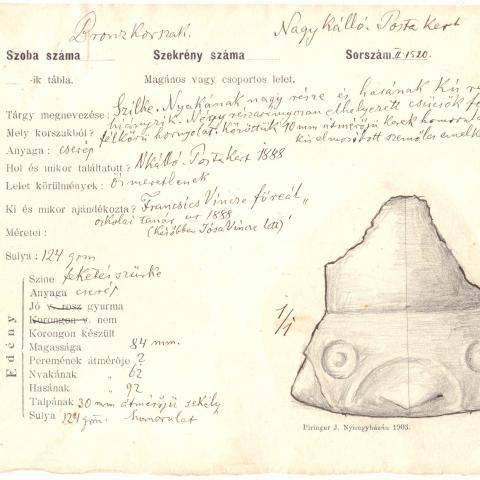 Bronzkorszak.
Nagykálló. Posta kert
Szoba száma
Szekrény száma
Sorszám. II. 1520.
-ik tábla.
Magános vagy csoportos lelet.
Tárgy megnevezése: Szilke. Nyakának nagy része és hasának kis
hiányzik. Négy részarányosan elhelyezett csücsök
Mely korszakból? félkörű hornyolat. Köröttük 10 mm átmérőjű kerek
Anyaga: cserép
kis elmosódott
Hol és mikor találtatott? Nkálló. Posta kert 1888
Lelet körülmények: Ismeretlenek
Ki és mikor ajándékozta? Francsics Vincze főreál„
iskolai tanár úr 1888
Méretei:
(Később Jósa Vincze lett)
Sulya: 124 gom
Edény
Szine feketés szürke
Anyaga cserép
Jó v. rosz gyurma
Korongon v. nem
Korongon készült
Magassága 84 mm.
Peremének átmérője ?
Nyakának „ 62
Hasának „ 92
Talpának 30 mm átmérőjű sekély
Sulya 124 gom. homorulat
1/1
Piringer J. Nyiregyházán 1903.